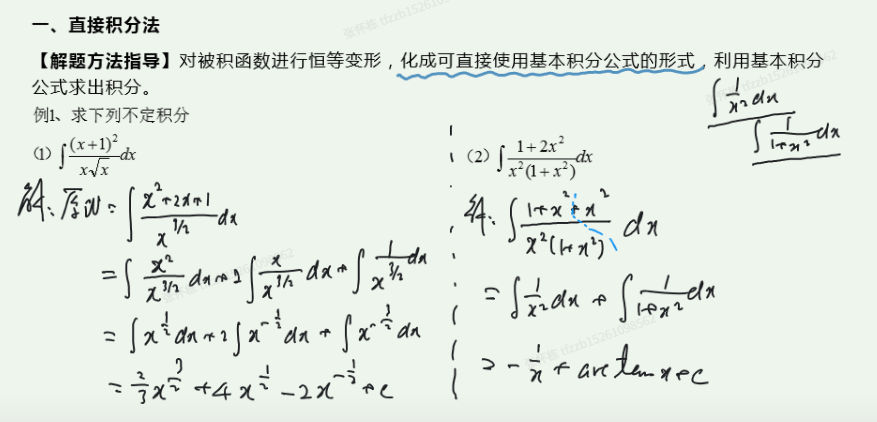 一、直接积分法
【解题方法指导】对被积函数进行恒等变形，化成可直接使用基本积分公式的形式，利用基本积分
公式求出积分。
∫ 1/x² dx
∫ 1/(1+x²) dx
例1、求下列不定积分
(1) ∫ (x+1)²/(x√x) dx
解：原式 = ∫ (x²+2x+1)/x^(3/2) dx
= ∫ x²/x^(3/2) dx + 2∫ x/x^(3/2) dx + ∫ 1/x^(3/2) dx
= ∫ x^(1/2) dx + 2∫ x^(-1/2) dx + ∫ x^(-3/2) dx
= 2/3 x^(3/2) + 4x^(1/2) - 2x^(-1/2) + c
(2) ∫ (1+2x²)/(x²(1+x²)) dx
解：∫ (1+x²+x²)/(x²(1+x²)) dx
= ∫ 1/x² dx + ∫ 1/(1+x²) dx
= -1/x + arctan x + c